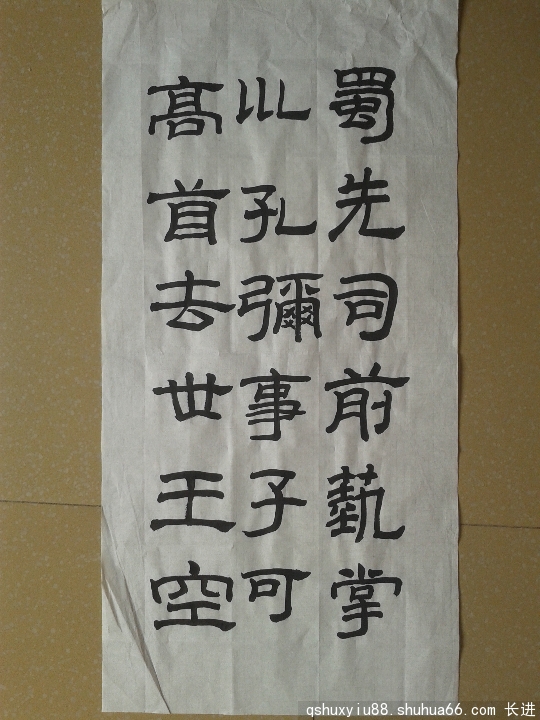 蜀先司前藝掌
川孔彌事子可
高首去世王空
qshuxyiu88.shuhua66.com 长进